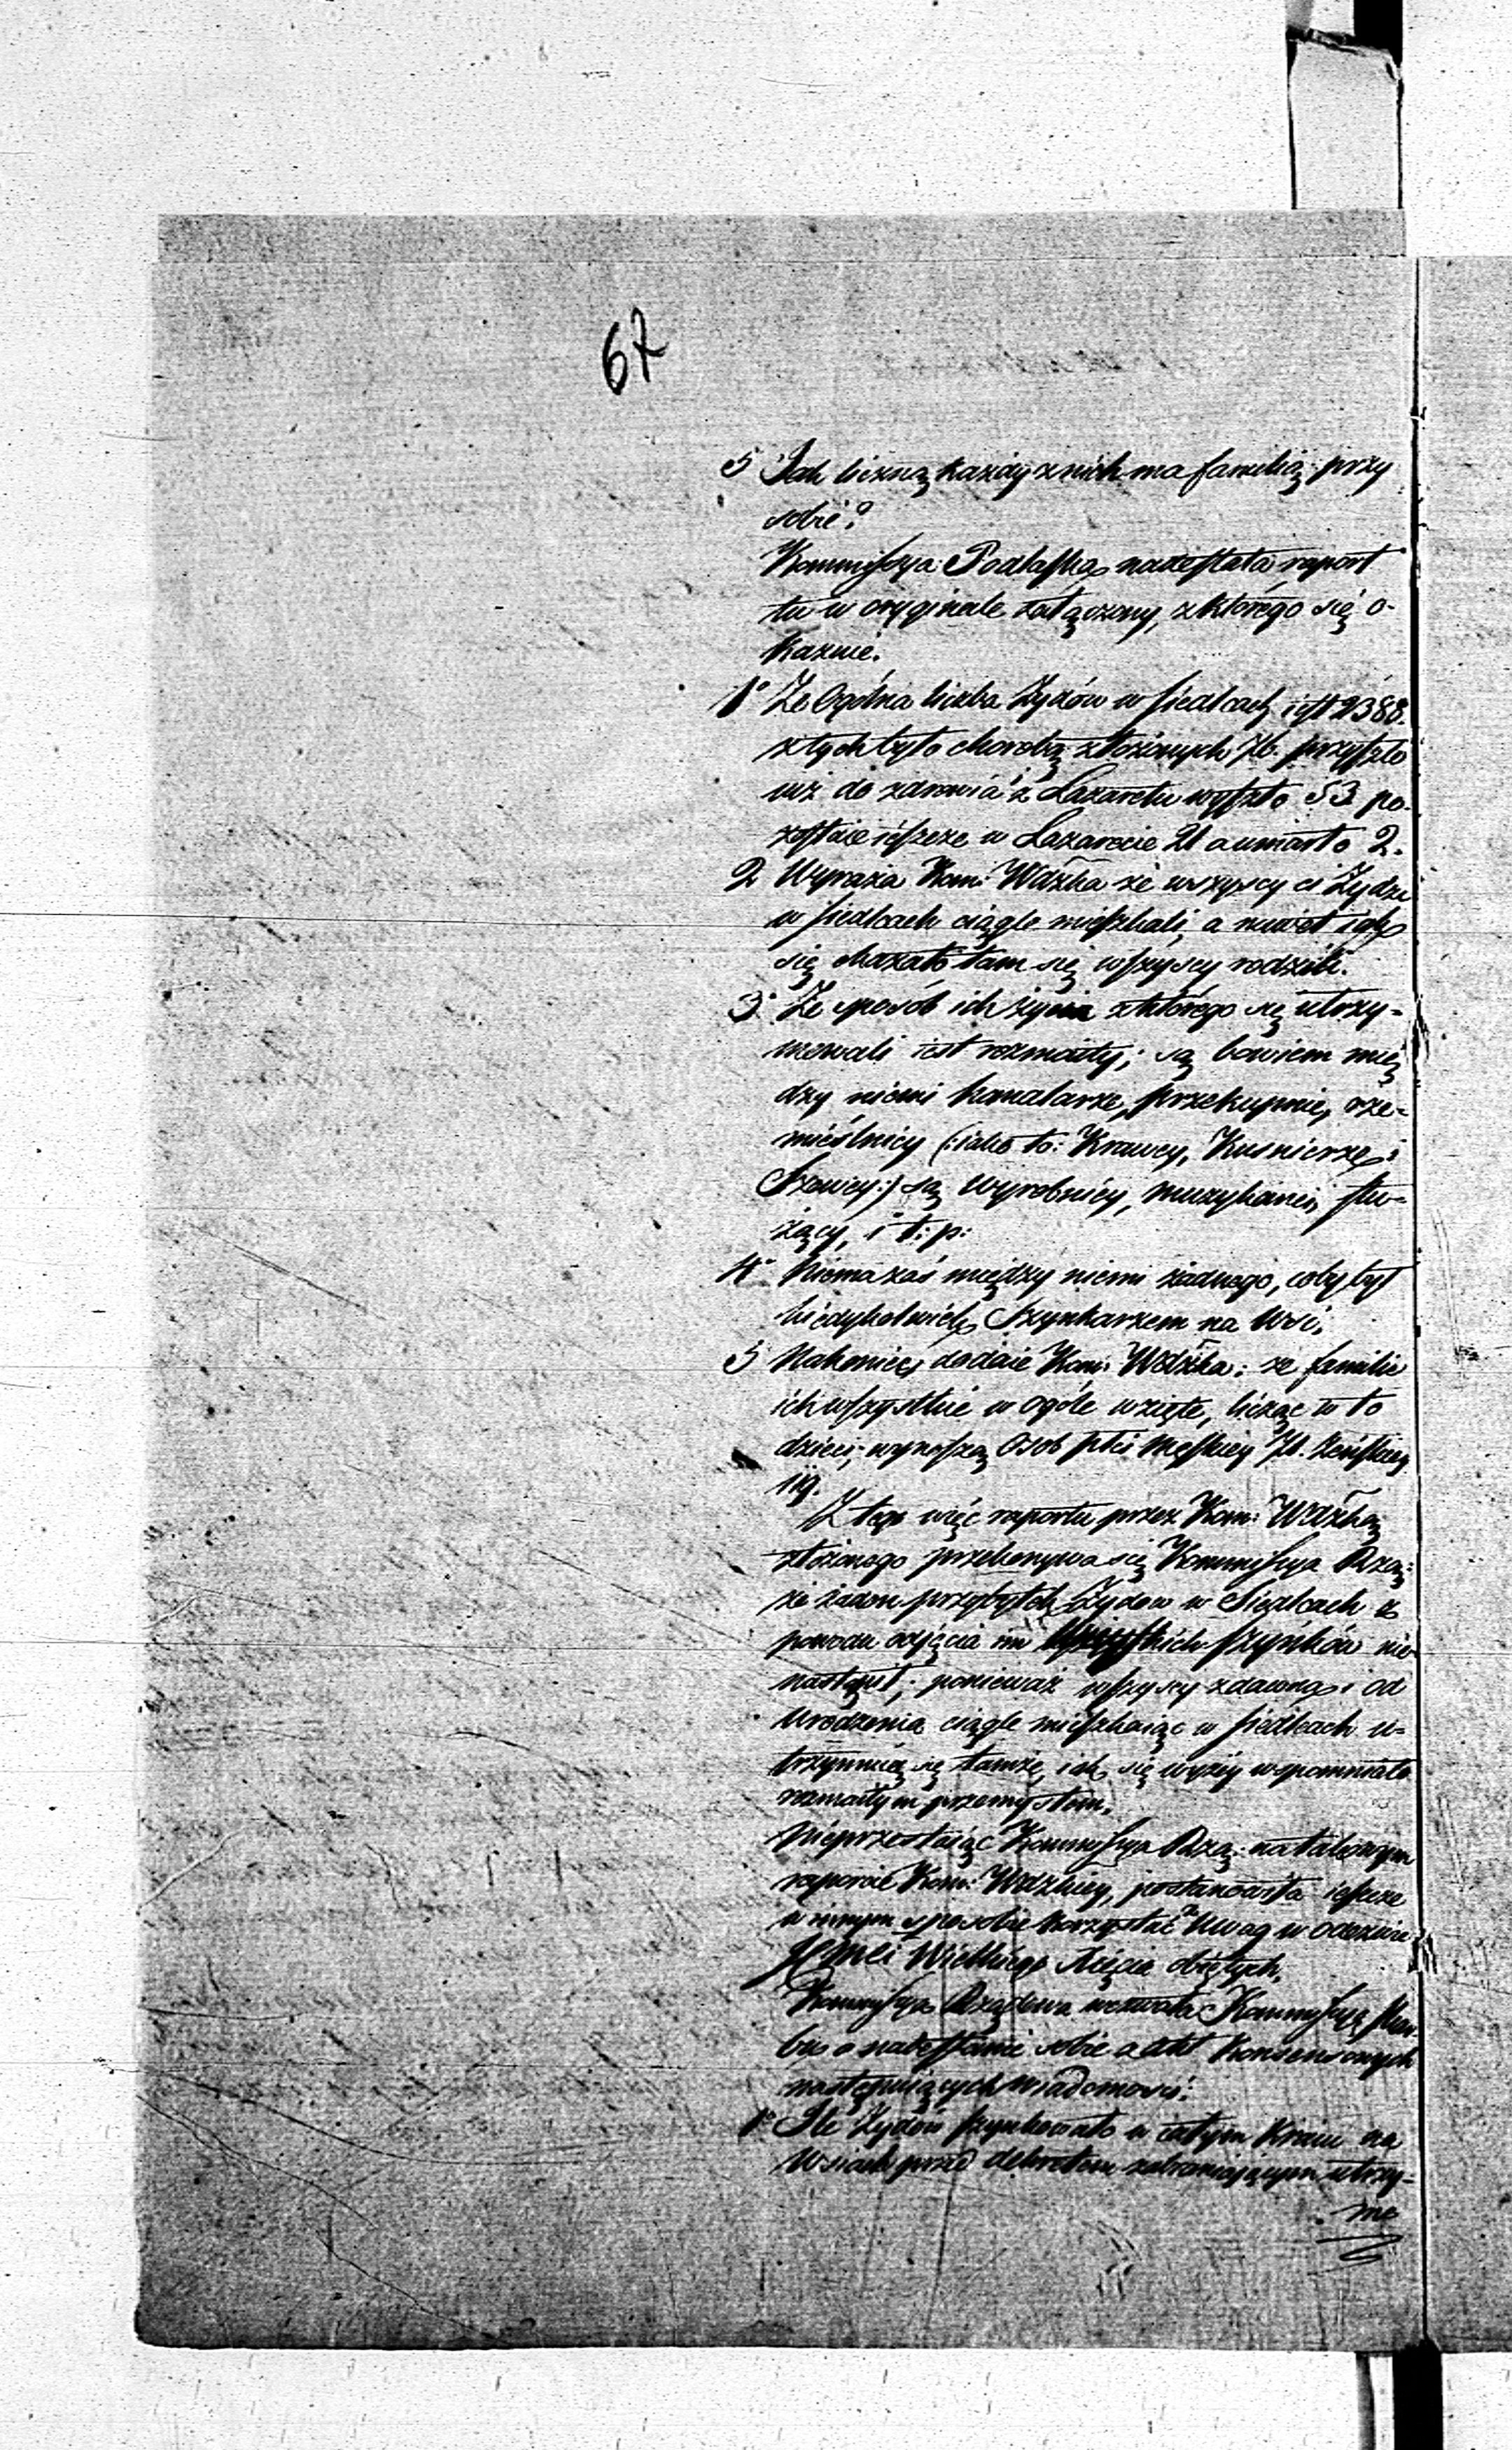 67
5 Jak liczną każdy z nich ma familią przy
sobie?
Kommissya Podlaska nadesłała raport
tu w oryginale załączony, z którego się o-
kazuie.
1° Że Ogólna liczba Żydów w Siedlcach iest 2388.
z tych było chorobą złożonych 76. przyszło
iuż do zdrowia i z Lazaretu wyszło 53 po-
zostaie ieszcze w Lazarecie 21 a umarło 2.
2 Wyraża Kom: Wdzka że wszyscy ci Żydzi
w Siedlcach ciągle mieszkali, a nawet iak
się okazało tam się wszyscy rodzili.
3° Że sposób ich życia z którego się utrzy-
mowali iest rozmaity; są bowiem mię
dzy niemi handlarze, przekupnie, rze-
mieślnicy (:iako to: Krawcy, Kusnierze i
Szewcy:) są wyrobnicy, muzykanci, słu-
żący, i t: p:
4° Niema zaś między niemi żadnego, coby był
kiedykolwiek Szynkarzem na Wsi.
5 Nakoniec dodaie Kom: Wdzka: że familie
ich wszystkie w ogóle wzięte, licząc w to
dzieci, wynoszą Osob płci męskiey 71. żeńskiey
119.
Z tego więc raportu przez Kom: Wdzką
złożonego przekonywa się Kommissya Rząd:
że żaden przybytek Żydow w Siedlcach z
powodu odjęcia im szynków nie
nastąpił; ponieważ wszyscy zdawna i od
urodzenia ciągle mieszkaiąc w Siedlcach u-
trzymuią się tamże, iak się wyżey wspomniało
rozmaitym przemysłem.
Nieprzestaiąc Kommissya Rzą: na takowym
raporcie Kom: Wdzkiey, postanowiła ieszcze
w innym sposobie korzystać z Uwag w odezwie
JCMci Wielkiego Xięcia obiętych.
Kommissya Rządowa wezwała Kommissyą Skar-
bu o nadesłanie sobie z akt Konsensowych
następuiących wiadomości:
1° Ile Żydów szynkowało w całym Kraiu na
Wsiach przed dekretem zabraniaiącym utrzy-
mo